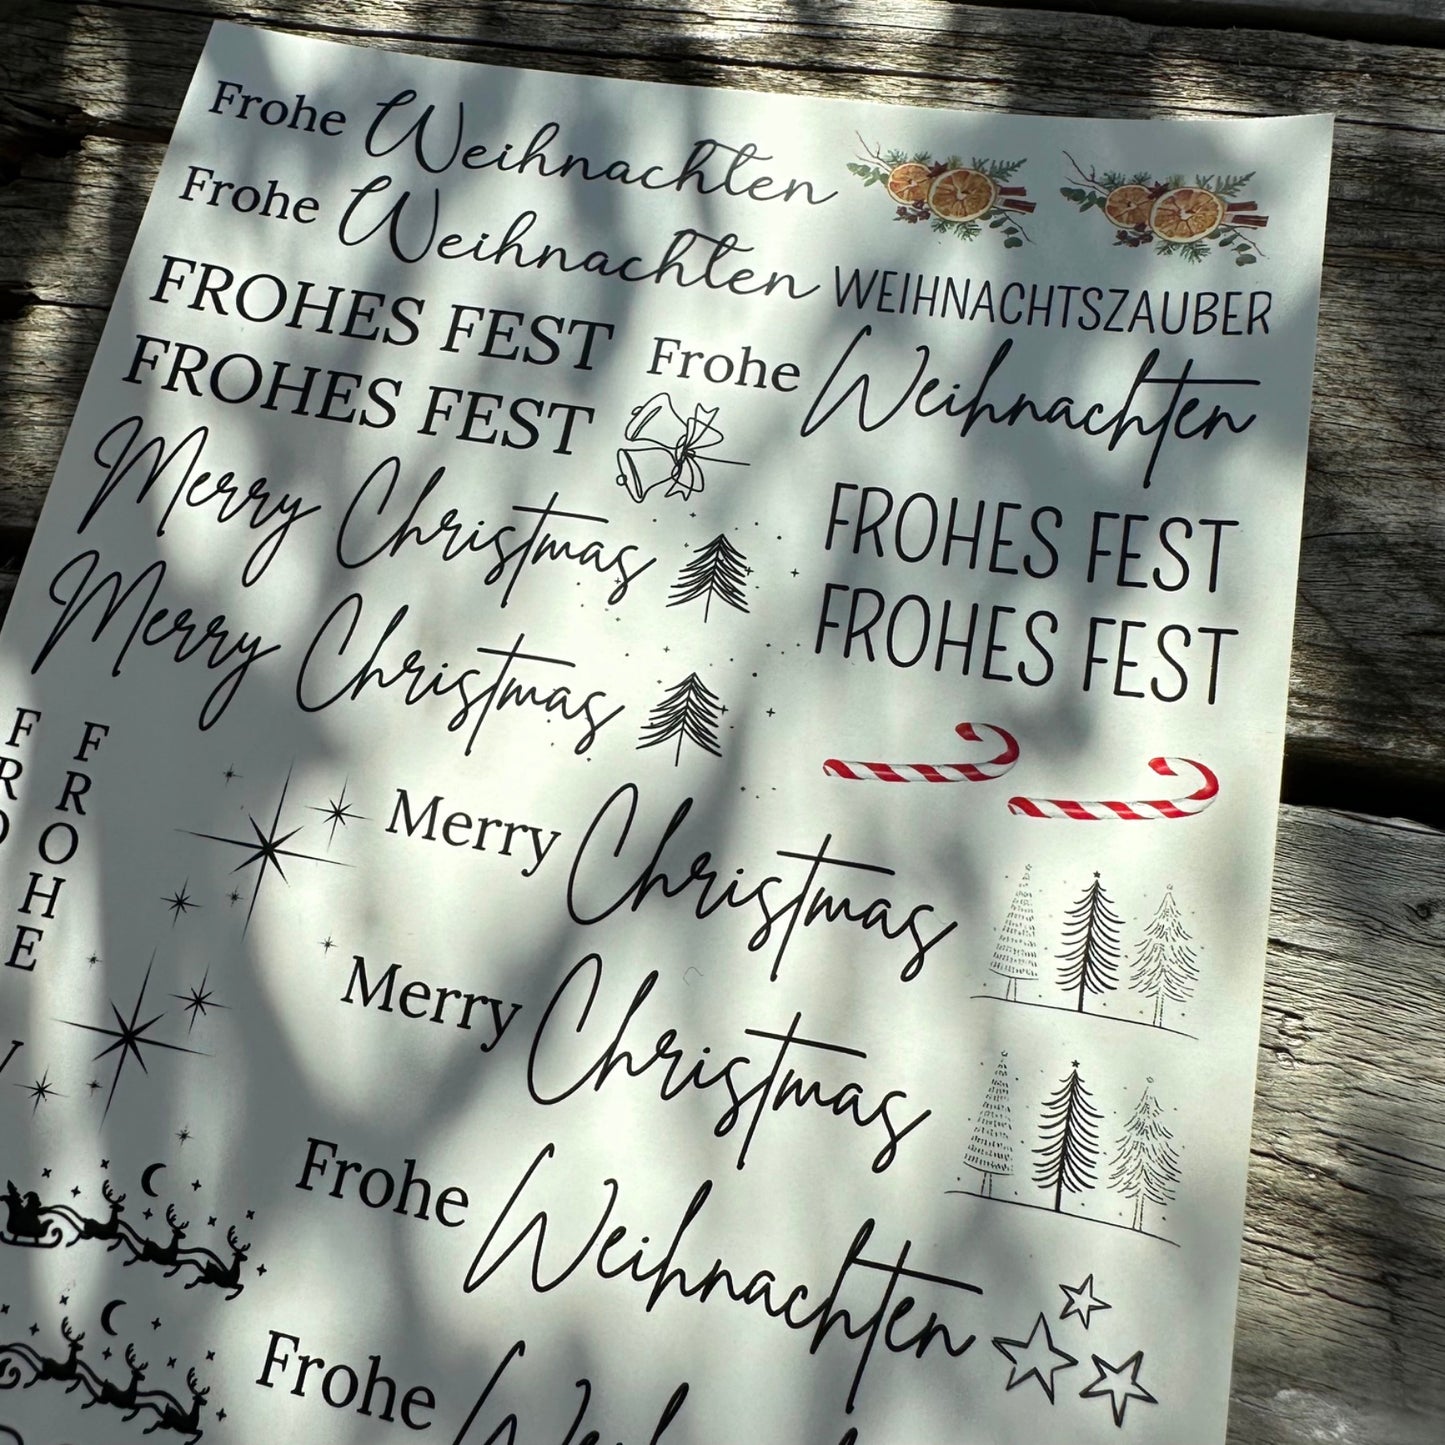 Frohe Weihnachten
Frohe Weihnachten
WEIHNACHTSZAUBER
FROHES FEST
Frohe Weihnachten
FROHES FEST
Merry Christmas
FROHES FEST
FROHES FEST
Merry Christmas
FROHE
Merry Christmas
Merry Christmas
Frohe Weihnachten
Frohe